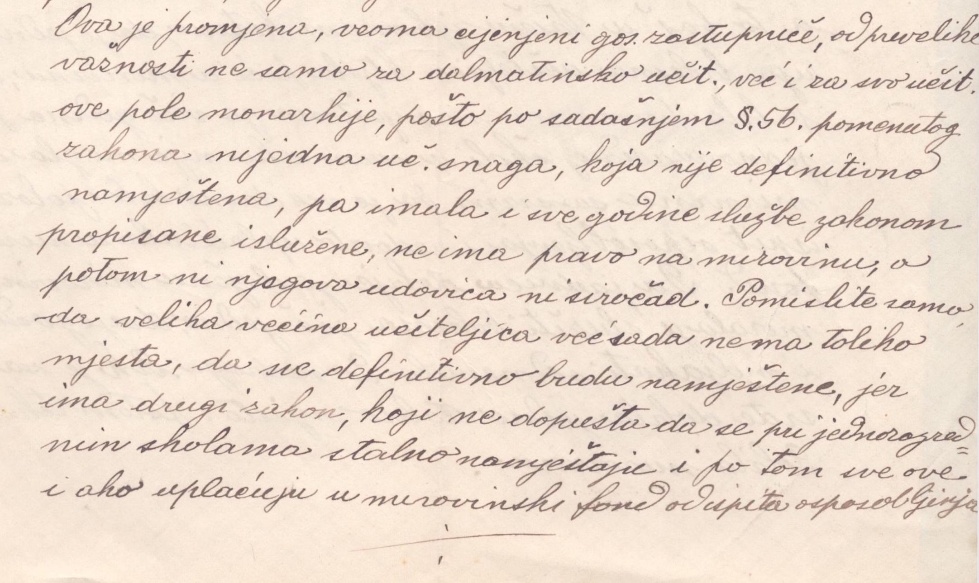 Ova je promjena, veoma cijenjeni gos. zastupniče, od prevelike
važnosti ne samo za dalmatinsko učit., već i za svo učit.
ove pole monarhije, pošto po sadašnjem §. 56. pomenutog
zakona nijedna uč. snaga, koja nije definitivno
namještena, pa imala i sve godine službe zakonom
propisane islužene, ne ima pravo na mirovinu, a
potom ni njegova udovica ni siročad. Pomislite samo,
da velika većina učiteljica već sada nema toliko
mjesta, da se definitivno budu namještene, jer
ima drugi zakon, koji ne dopušta da se pri jednorazred=
nim školama stalno namještaju i po tom sve ove
i ako uplaćuju u mirovinski fond od ispita osposobljenja